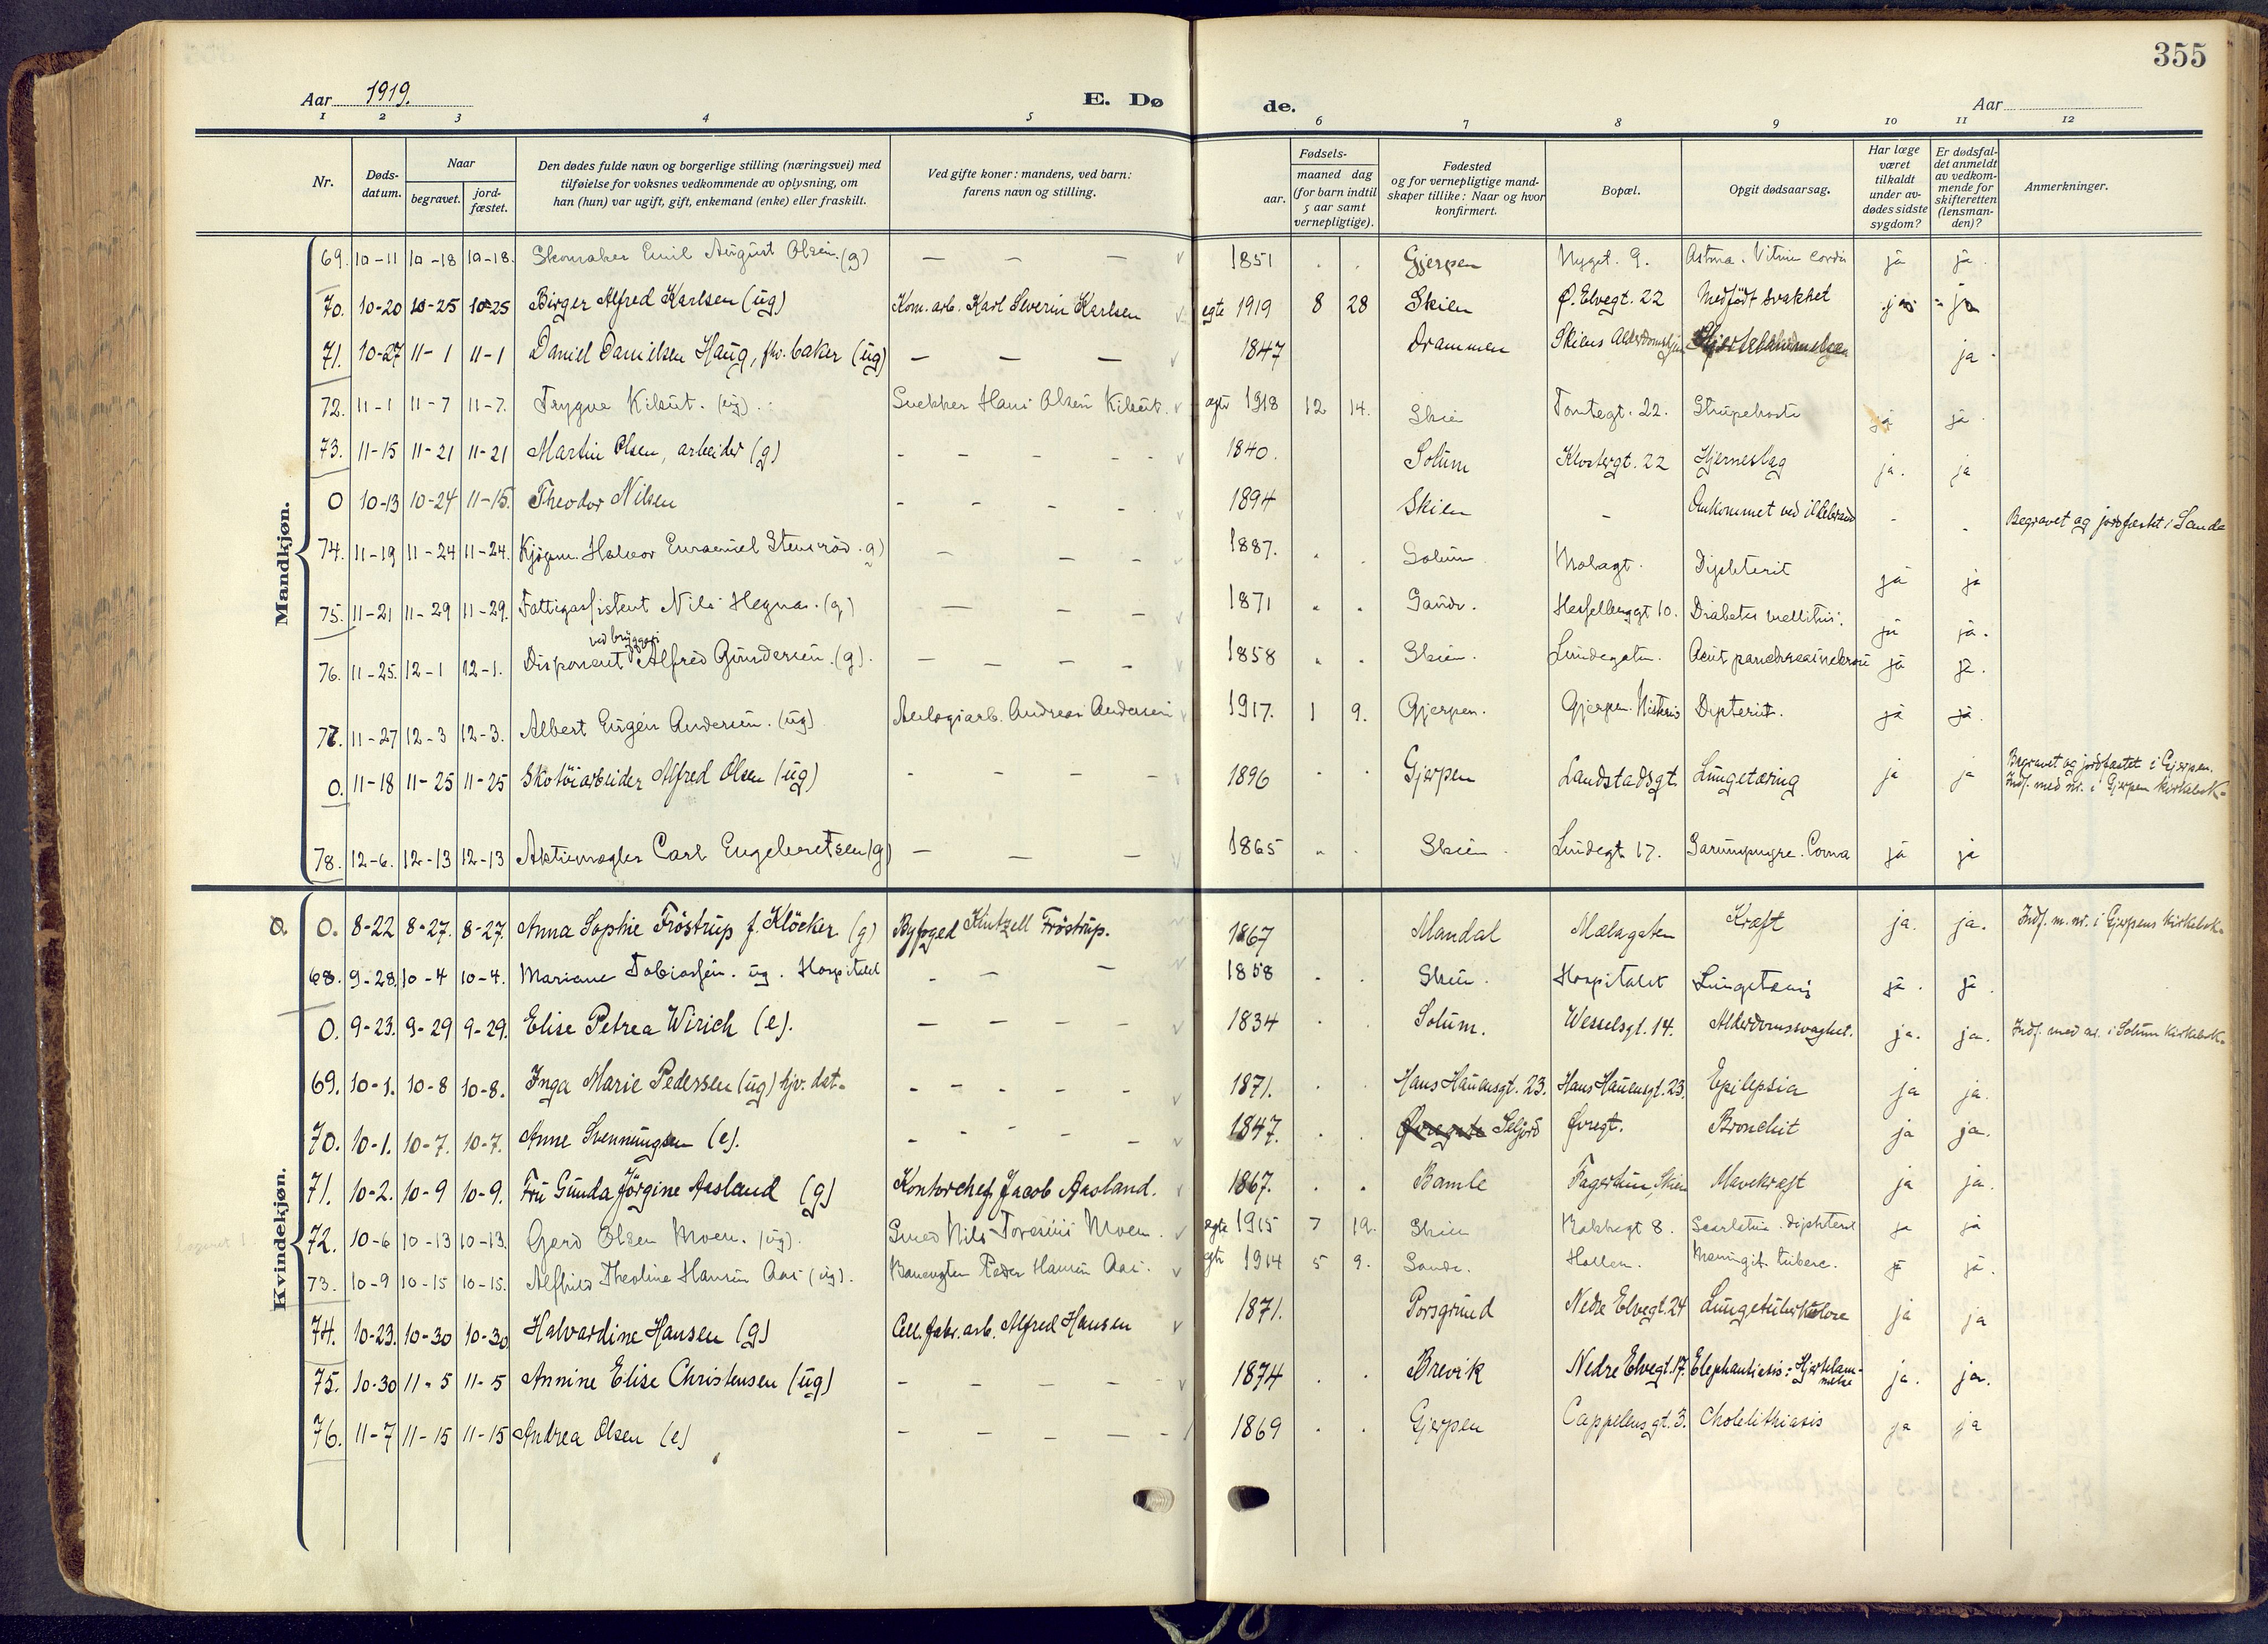 355
Aar 1919. E. Dø de. Aar
1 2 3 4 5 6 7 8 9 10 11 12
Nr. Døds-datum. Naar begravet. jord-fæstet. Den dødes fulde navn og borgerlige stilling (næringsvei) med tilføielse for voksnes vedkommende av oplysning, om han (hun) var ugift, gift, enkemand (enke) eller fraskilt. Ved gifte koner: mandens, ved barn: farens navn og stilling. Fødsels- aar. maaned dag (for barn indtil 5 aar samt vernepligtige). Fødested og for vernepligtige mand-skaper tillike: Naar og hvor konfirmert. Bopæl. Opgit dødsaarsag. Har læge været tilkaldt under av-dødes sidste sygdom? Er dødsfal-det anmeldt av vedkom-mende for skifteretten (lensman-den)? Anmerkninger.
Mandkjøn.
69. 10-11 10-18 10-18. Skomaker Emil August Olsen. (g) — — — 1851 Gjerpen Nygt. 9. Astma. Vitium cordis ja ja
70. 10-20 10-25 10-25 Birger Alfred Karlsen (ug) Kom. arb. Karl Severin Karlsen egte 1919 8 28 Skien Ø. Elvegt. 22 Medfödt svakhet ja ja
71. 10-27 11-1 11-1 Daniel Danielsen Haug, fhv. baker (ug) — — — 1847 Drammen Skiens Alderdomshjem ja
72. 11-1 11-7 11-7. Trygve Kilsut. (ug). Hans Olsen Kilsut. egte 1918 12 14. Skien Tomtegt. 22. Strupehoste ja ja
73. 11-15 11-21 11-21 Martin Olsen, arbeider (g) - - - - 1840. Solum Klostergt. 22 Hjerneslag ja. ja
0 10-13 10-24 11-15. Theodor Nilsen - - - - 1894 Skien - Omkommet ved ildebrand - - Begravet og jordfæstet i Sande
74. 11-19 11-24 11-24. Kjøpm. Halvor Emanuel Stensrød. g) — — — 1887. Solum Molagt. Diphterit ja ja
75. 11-21 11-29 11-29. Fattigassistent Nils Hegna. (g) — — — 1871 Sande. Hesselberggt 10. Diabetes mellitus. ja ja.
76. 11-25. 12-1 12-1. Disponent ved bryggeri Alfred Gundersen. (g). — — — — 1858 Skien. Lundegaten. Acut pancreasnekrose ja ja.
77. 11-27 12-3 12-3. Albert Eugen Andersen. (ug) Andreas Andersen 1917. 1 9. Gjerpen. Gjerpen. Dipterit. ja ja.
0. 11-18 11-25 11-25 Skotöiarbeider Alfred Olsen (ug) - - - - 1896 Gjerpen Landstadsgt. Lungetæring ja ja Begravet og jordfæstet i Gjerpen. Indf. med nr. i Gjerpen kirkebok.
78. 12-6. 12-13 12-13 Aktiemægler Carl Engebretsen (g) — — — 1865 Skien Lundegt. 17. ja ja
Kvindekjøn.
0. 0. 8-22 8-27. 8-27. Anna Sophie Fröstrup f. Klöcker (g) Byfoged Kintzell Fröstrup. 1867 Mandal Mælagaten Kræft ja. ja. Indf. m. nr. i Gjerpens kirkebok.
68. 9-28. 10-4 10-4. Mariane Tobiassen. ug. Hospitalet - — — 1858 Skien. Hospitalet Lungetæring ja. ja.
0. 9-23. 9-29 9-29. Elise Petrea Wirich (e). — — — — 1834 Solum. Wesselsgt. 14. Alderdomssvaghet. ja. ja. Indf. med nr. i Solum kirkebok.
69. 10-1. 10-8 10-8. Inga Marie Pedersen (ug) hjv. dat. - - - - 1871. Hans Hauensgt. 23. Hans Hauensgt. 23. Epilepsia ja ja.
70. 10-1. 10-7. 10-7. Anne Svenningsen (e). - - - - - 1847. Seljord Øvregt. Bronchit ja ja.
71. 10-2. 10-9 10-9. Fru Gunda Jörgine Aasland (g) Kontorchef Jacob Aasland. 1867. Bamle Fagerlun, Skien Mavekræft ja ja.
72. 10-6 10-13 10-13. Gerd Olsen Moen. (ug). Smed Nils Moen. egte 1915 7 19. Skien Bakkegt 8. Scarlatina. Diphterit ja ja
73. 10-9 10-15 10-15. Alfhild Theoline Hansen Aas (ug). Banevogter Peder Hansen Aas. egte 1914 5 9. Sande. Hollen. Meningit. tuberc. ja ja.
74. 10-23. 10-30 10-30. Halvardine Hansen (g) Cell. fabr. arb. Alfred Hansen 1871. Porsgrund Nedre Elvegt. 24 Lungetuberkulose ja ja
75. 10-30 11-5 11-5 Annine Elise Christensen (ug) - - - - - 1874 Brevik Nedre Elvegt. 17. Elephantiasis: Hjertelam-melse ja. ja.
76. 11-7 11-15 11-15 Andrea Olsen (e) - - - - - 1869 Gjerpen Cappelensgt. 3. Cholelithiasis ja ja